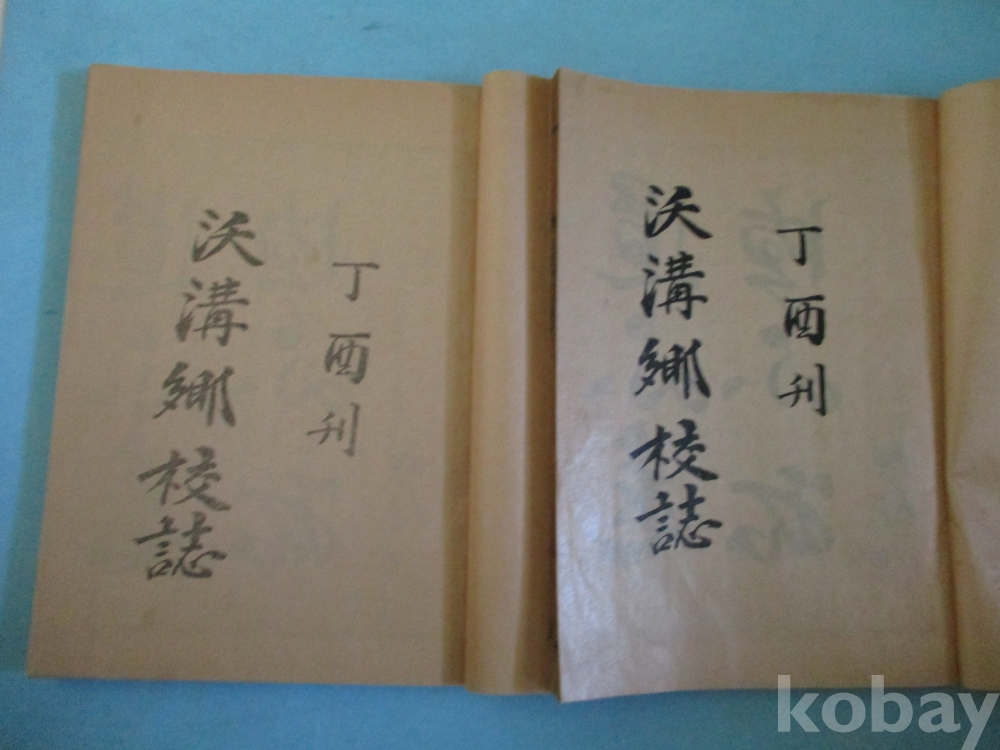 丁酉刊
沃溝鄉校誌
丁酉刊
沃溝鄉校誌
kobay